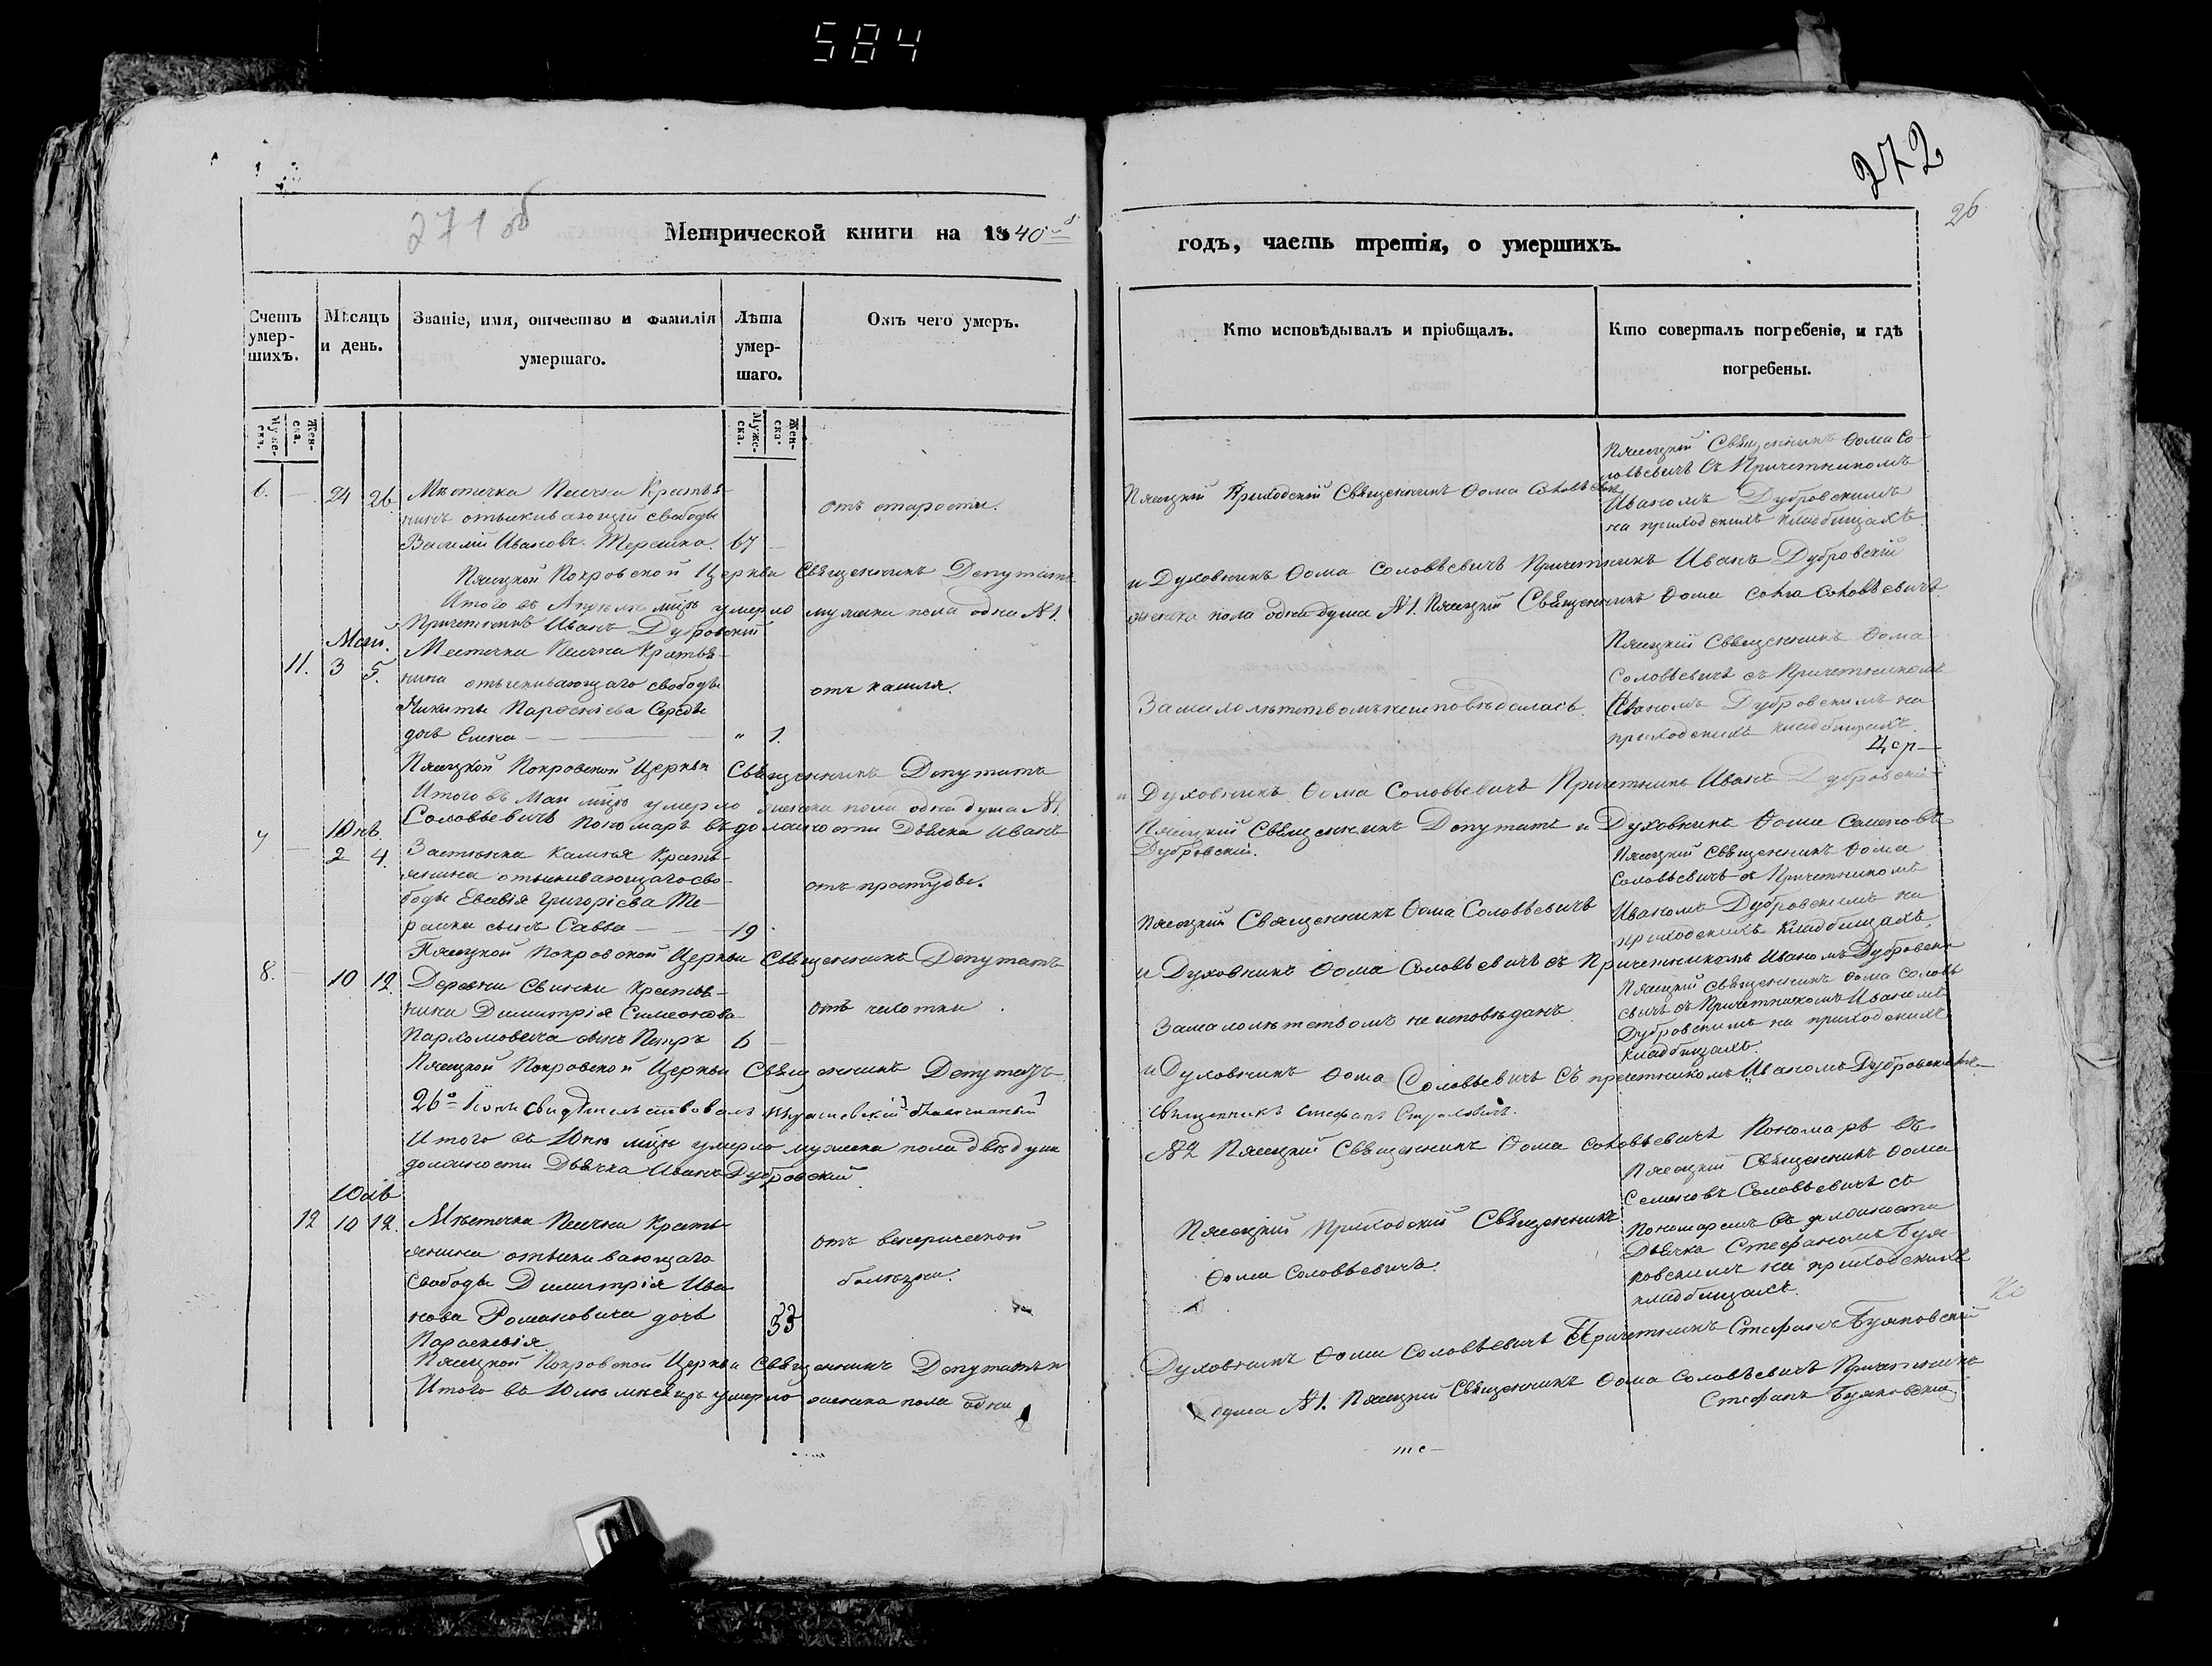 584
272
26
271 об
Метрической книги на 1840й
годъ, часть третія, о умершихъ.
Счетъ умер-шихъ.
Мѣсяцъ и день.
Званіе, имя, отчество и фамилія умершаго.
Лѣта умер-шаго.
Отъ чего умеръ.
Кто исповѣдывалъ и пріобщалъ.
Кто совершалъ погребеніе, и гдѣ погребены.
Муже-ска.
Жен-ска.
Муже-ска.
Жен-ска.
6. — 24 26
Мѣстечка Песчки Крестья-
нинъ отыскивающій свободы
Василій Ивановъ Терешко. 67 —
отъ старости.
Пясецкій Приходскій Священникъ Ѳома Соловѣевичъ
Пясецкій Священникъ Ѳома Со-
ловѣевичъ съ Причетникомъ
Иваномъ Дубровскимъ
на приходскихъ кладбищахъ.
Пясецкой Покровской Церкви Священникъ Депутатъ
и Духовникъ Ѳома Соловѣевичъ Причетникъ Иванъ Дубровскій
Итого въ Апрѣлѣ мцѣ умерло мужеска пола одна №1.
женска пола одна душа №1. Пясецкій Священникъ Ѳома Соловѣевичъ
Причетникъ Иванъ Дубровскій
Май.
11. 3 5.
Местечка Песчки Крестья-
нина отыскивающаго свободы
Никиты Парѳеніева Середы
дочь Елена — " 1.
отъ кашля.
За малолѣтствомъ неисповѣдалась.
Пясецкій Священникъ Ѳома
Соловѣевичъ съ Причетникомъ
Иваномъ Дубровскимъ на
приходскихъ кладбищахъ.
Цер—
Пясецкой Покровской Церкви Священникъ Депутатъ
и Духовникъ Ѳома Соловьевичъ Причетникъ Иванъ Дубровскій
Итого въ Маи мцѣ умерло женска пола одна душа №1.
Пясецкій Священникъ Депутатъ и Духовникъ Ѳома Семеновъ
Соловьевичъ Пономарь въ должности Дьячка Иванъ
Дубровскій.
Юнь
7 — 2 4.
Застѣнка Камня Кресть-
янина отыскивающаго сво-
боды Евсевія Григоріева Те-
решки сынъ Савва — 19
отъ простуды.
Пясецкій Священникъ Ѳома Соловѣевичъ
Пясецкій Священникъ Ѳома
Соловѣевичъ съ Причетникомъ
Иваномъ Дубровскимъ на
приходскихъ кладбищахъ.
Пясецкой Покровской Церкви Священникъ Депутатъ
и Духовникъ Ѳома Соловѣевичъ съ Причетникомъ Иваномъ Дубровски
8. — 10 12.
Деревни Свинки Крестья-
нина Димитрія Симеонова
Пархомовича сынъ Петръ 6 —
отъ чахотки.
За малолѣтствомъ не исповѣданъ.
Пясецкій Священникъ Ѳома Соловѣ
евичъ съ Причетникомъ Иваномъ
Дубровскимъ на приходскихъ
кладбищахъ.
Пясецкой Покровской Церкви Священникъ Депутатъ
и Духовникъ Ѳома Соловьевичъ съ причетникомъ Иваномъ Дубровским
26о Юнь свидѣтельствовалъ
священникъ Стефанъ
Итого въ Юнѣ мцѣ умерло мужска пола двѣ душ
№2 Пясецкій Священникъ Ѳома Соловьевичъ Пономарь въ
должности Дьячка Иванъ Дубровскій
Юль
12 10 12.
Мѣстечка Песчки Кресть-
янина отыскивающаго
Свободы Димитрія Ива
нова Романовича дочь
Параскевія 33
отъ венерической
болѣзни.
Пясецкій Приходскій Священникъ
Ѳома Соловьевичъ.
Пясецкій Священникъ Ѳома
Семеновъ Соловьевичъ съ
Пономаремъ въ должности
Дьячка Стефаномъ Буя-
ковскимъ на приходскихъ
кладбищахъ.
Пясецкой Покровской Церкви Священникъ Депутатъ и
Духовникъ Ѳома Соловѣевичъ Причетникъ Стефанъ Буяковскій
Итого въ Юлѣ мѣсяцѣ умерло женска пола одна
душа №1. Пясецкій Священникъ Ѳома Соловѣевичъ Причетникъ
Стефанъ Буяковскій
те—